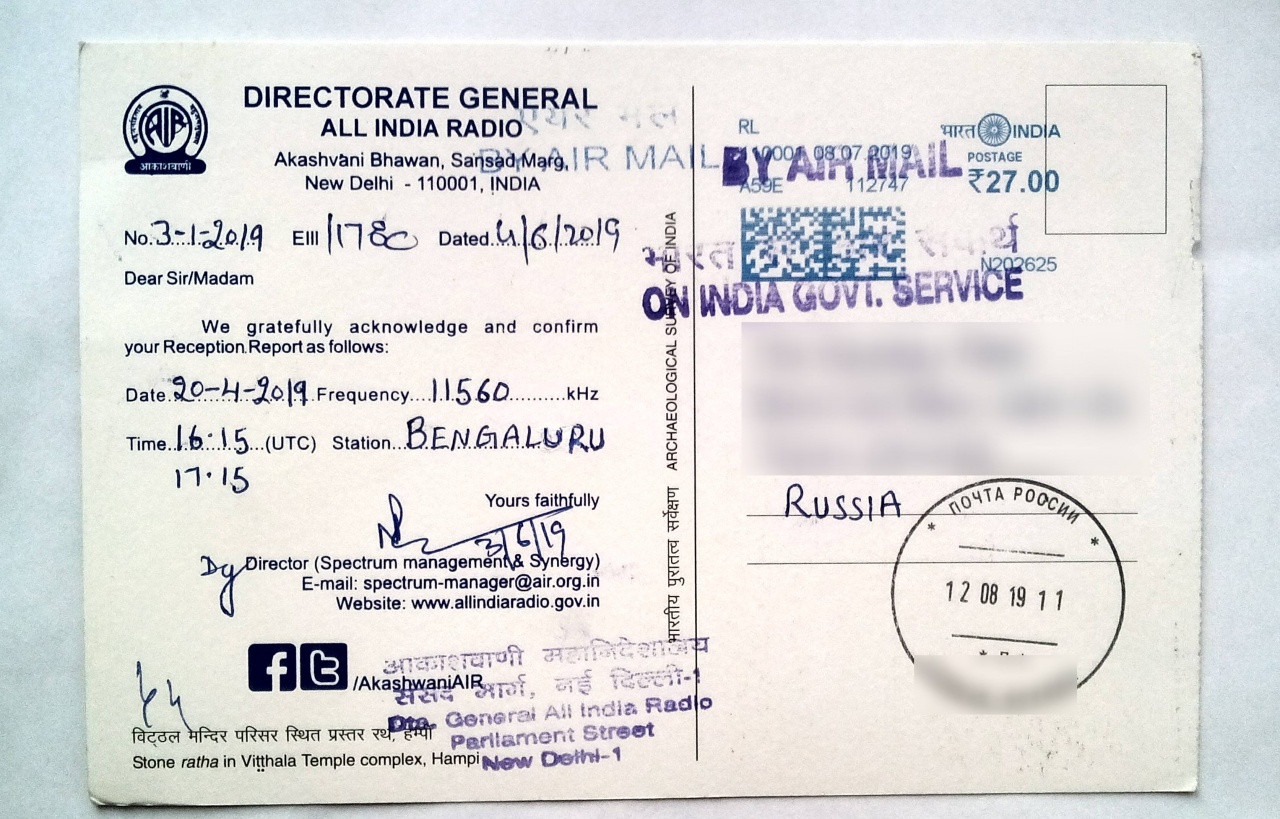 DIRECTORATE GENERAL
ALL INDIA RADIO
Akashvani Bhawan, Sansad Marg,
New Delhi - 110001, INDIA
AIR
आकाशवाणी
एयर मेल
BY AIR MAIL
No. 3-1-2019 EIII /1780 Dated. 4/6/2019
Dear Sir/Madam
We gratefully acknowledge and confirm
your Reception Report as follows:
Date. 20-4-2019 Frequency. 11560 kHz
Time. 16:15 (UTC) Station. BENGALURU
17.15
Yours faithfully
3/6/19
Dy Director (Spectrum management & Synergy)
E-mail: spectrum-manager@air.org.in
Website: www.allindiaradio.gov.in
/AkashwaniAIR
आकाशवाणी महानिदेशालय
संसद मार्ग, नई दिल्ली-1
Dte. General All India Radio
Parliament Street
New Delhi-1
विट्ठल मन्दिर परिसर स्थित प्रस्तर रथ, हम्पी
Stone ratha in Vitthala Temple complex, Hampi
भारतीय पुरातत्व सर्वेक्षण ARCHAEOLOGICAL SURVEY OF INDIA
RL
110001 08.07.2019
A59E 112747
भारत INDIA
POSTAGE
₹27.00
N202625
BY AIR MAIL
भारत सेवार्थ
ON INDIA GOVT. SERVICE
RUSSIA
* ПОЧТА РОССИИ *
12 08 19 11